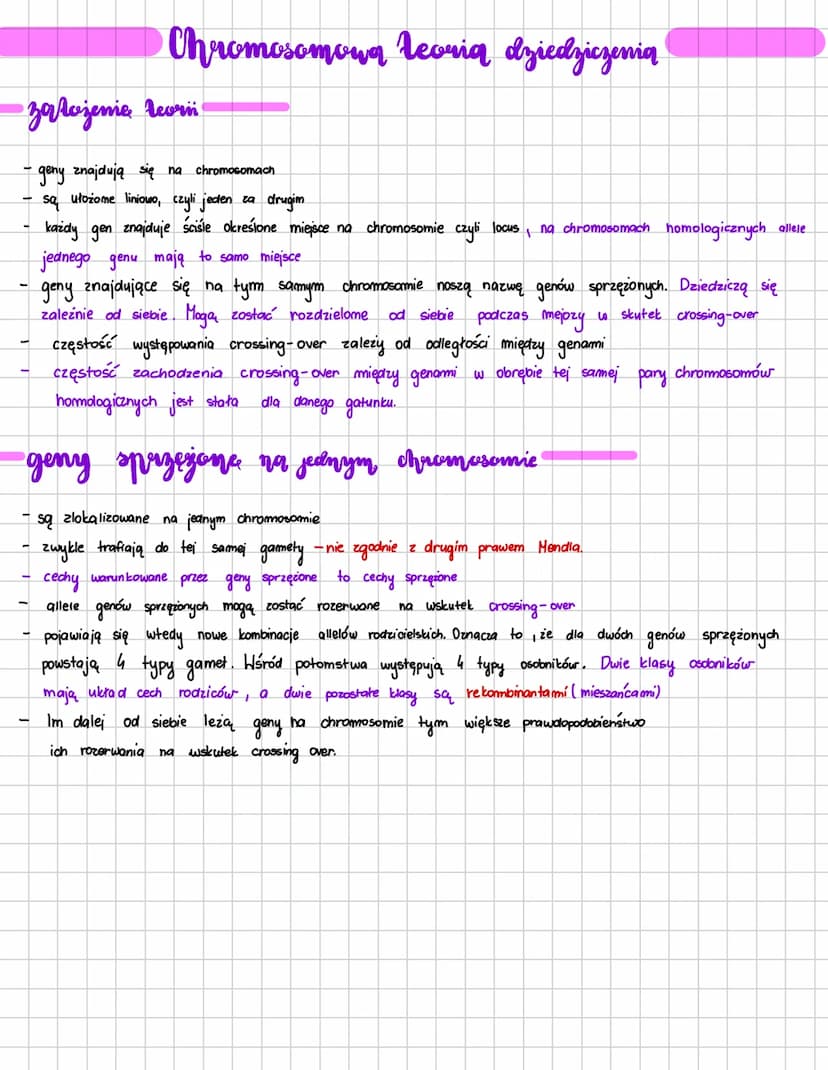 Chromosomowa teoria dziedziczenia
założenia teorii
- geny znajdują się na chromosomach
- są ułożome liniowo, czyli jeden za drugim
- każdy gen znajduje ściśle określone miejsce na chromosomie czyli locus, na chromosomach homologicznych allele
jednego genu mają to samo miejsce
- geny znajdujące się na tym samym chromosomie noszą nazwę genów sprzężonych. Dziedziczą się
zależnie od siebie. Mogą zostać rozdzielome od siebie podczas mejozy w skutek crossing-over
- częstość występowania crossing-over zależy od odległości między genami
- częstość zachodzenia crossing-over między genami w obrębie tej samej pary chromosomów
homologicznych jest stała dla danego gatunku.
geny sprzężone na jednym chromosomie
- są zlokalizowane na jednym chromosomie
- zwykle trafiają do tej samej gamety - nie zgodnie z drugim prawem Mendla.
- cechy warunkowane przez geny sprzężone to cechy sprzężone
- allele genów sprzężonych mogą zostać rozerwane na wskutek crossing-over
- pojawiają się wtedy nowe kombinacje allelów rodzicielskich. Oznacza to, że dla dwóch genów sprzężonych
powstają 4 typy gamet. Wśród potomstwa występują 4 typy osobników. Dwie klasy osobników
mają układ cech rodziców, a dwie pozostałe klasy są rekombinantami (mieszańcami)
- Im dalej od siebie leżą geny na chromosomie tym większe prawdopodobieństwo
ich rozerwania na wskutek crossing over.